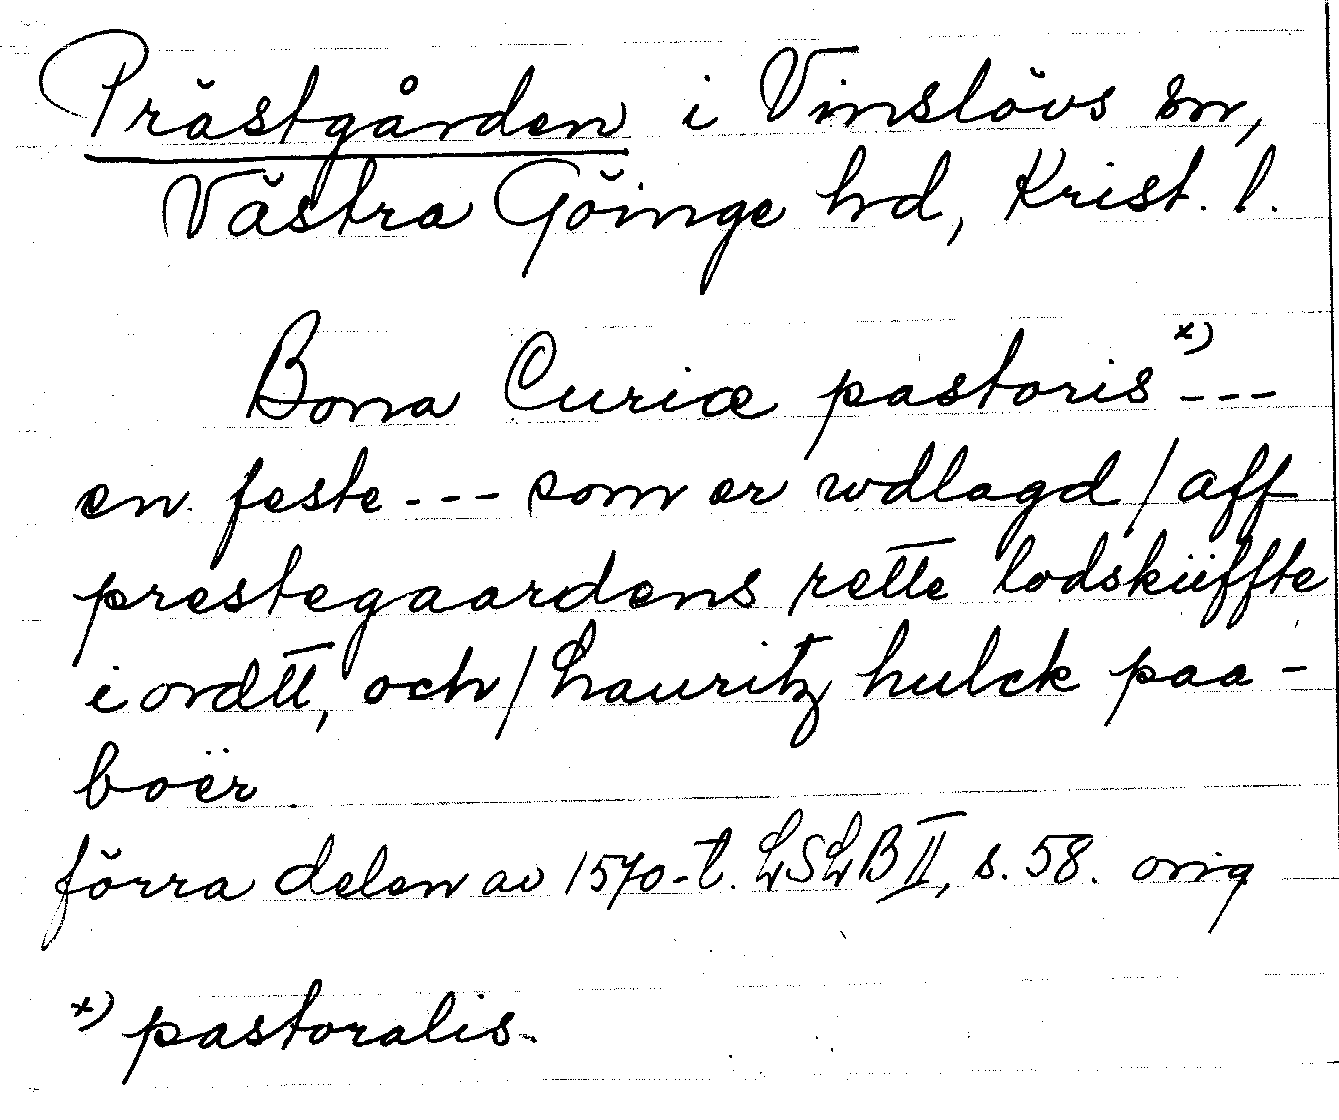 Prästgården i Vinslövs sn,
Västra Göinge hd, Krist. l.
Bona Curiæ pastoris x) ---
en feste --- som er wdlagd / aff
prestegaardens rette lodskiiffte
i ordtt, och / Lauritz hulck paa-
boër.
förra delen av 1570-t. LSLB II, s. 58. orig
x) pastoralis.